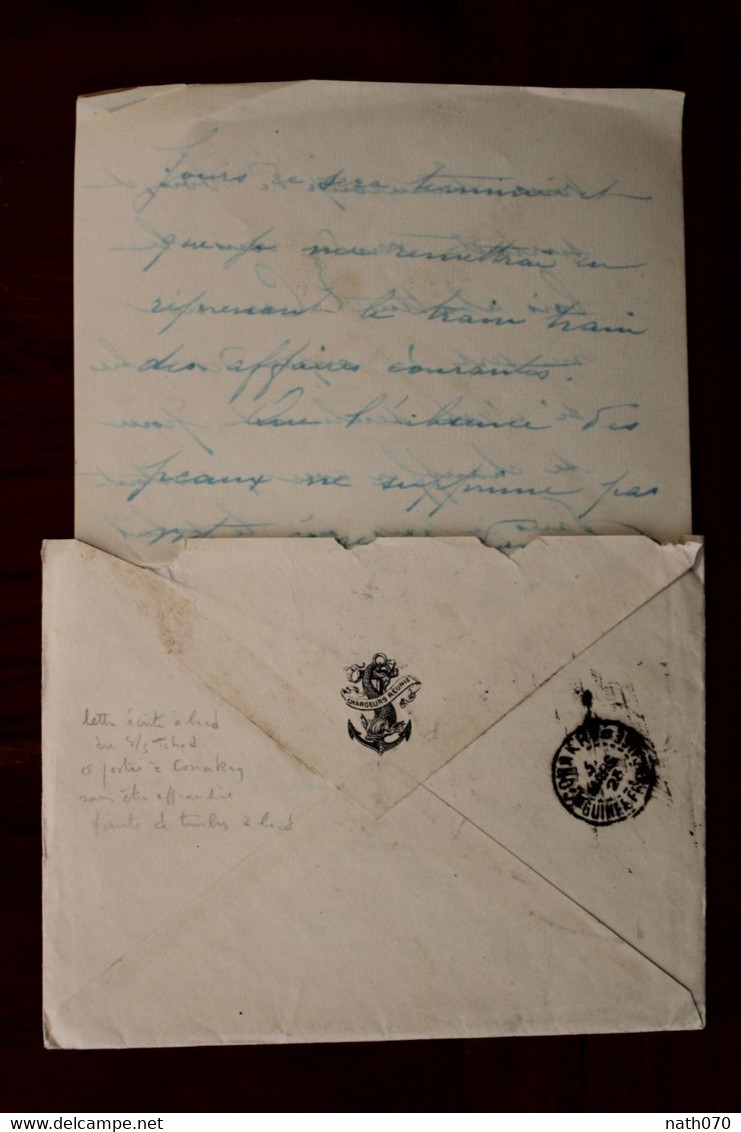 Jours ce sera terminé et
que je me remettrai en
reprenant le train train
des affaires courantes.
Que l'absence des
peaux ne supprime pas
CHARGEURS RÉUNIS
lettre écrite à bord
du S/S Tchad
et postée à Conakry
sans être affranchie
faute de timbres à bord
CONAKRY
MARS
25
GUINÉE FRSE
delcampe.net
nath070